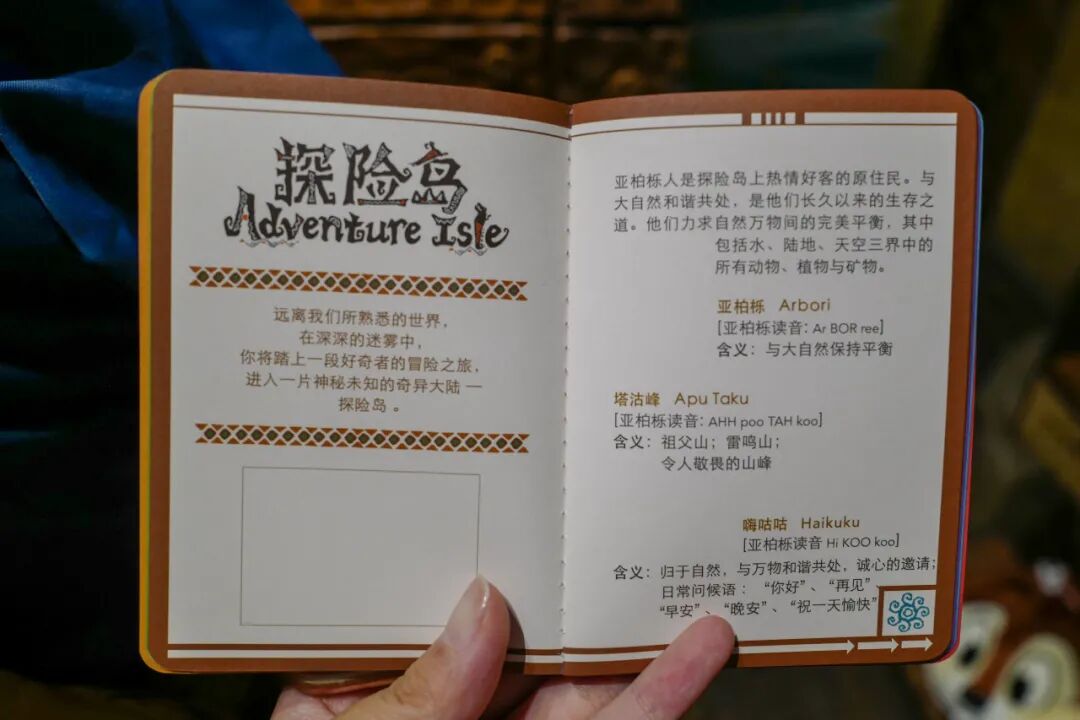 探险岛
Adventure Isle
远离我们所熟悉的世界，
在深深的迷雾中，
你将踏上一段好奇者的冒险之旅，
进入一片神秘未知的奇异大陆 —
探险岛 。
亚柏栎人是探险岛上热情好客的原住民。与
大自然和谐共处，是他们长久以来的生存之
道。他们力求自然万物间的完美平衡，其中
包括水、陆地、天空三界中的
所有动物、植物与矿物。
亚柏栎 Arbori
[亚柏栎读音: Ar BOR ree]
含义：与大自然保持平衡
塔沽峰 Apu Taku
[亚柏栎读音: AHH poo TAH koo]
含义：祖父山；雷鸣山；
令人敬畏的山峰
嗨咕咕 Haikuku
[亚柏栎读音 Hi KOO koo]
含义：归于自然，与万物和谐共处，诚心的邀请；
日常问候语：“你好”、“再见”、
“早安”、“晚安”、“祝一天愉快”